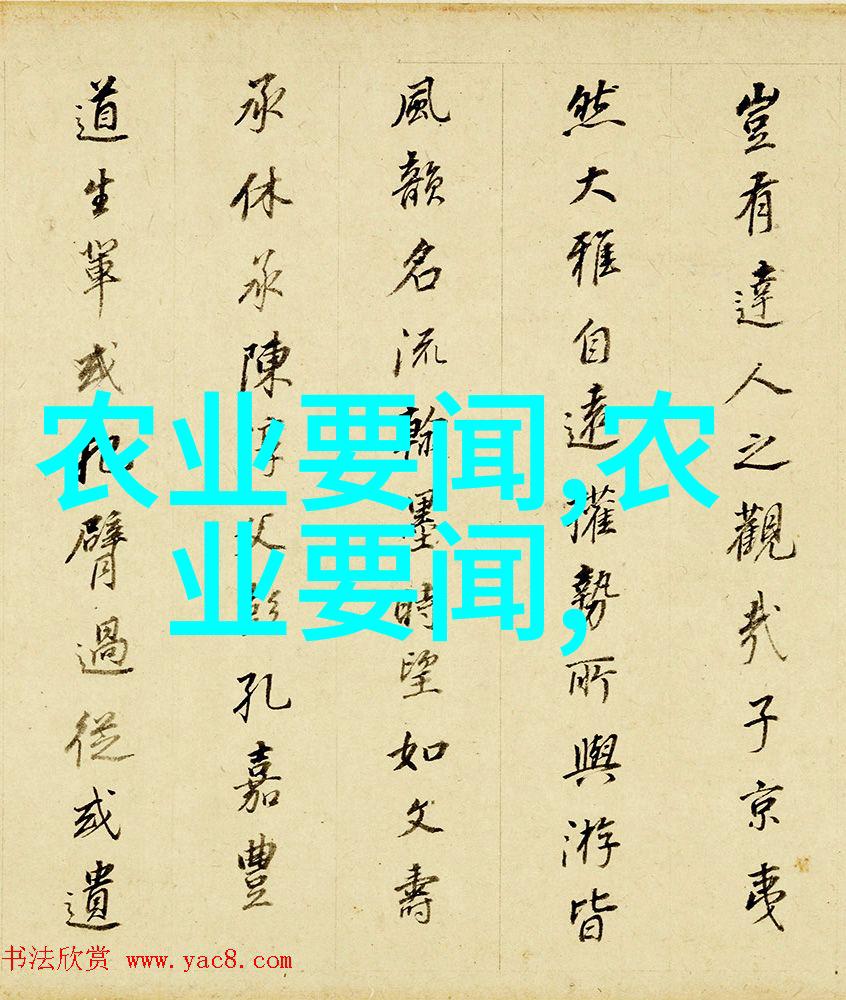 豈有達人之觀哉子京夷
然大雅自遠權勢所與游皆
風韻名流翰墨時望如文壽
承休承陳淳父彭孔嘉豐
道生輩或把臂過從或遺
农业要闻,农
业要闻,
书法欣赏 www.yac8.com